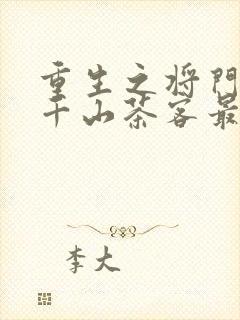 重生之将门
千山茶客最
李大